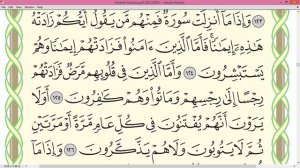 Mushaf Madinah.pdf - Adobe Reader
١٢٣ وَإِذَا مَآ أُنزِلَتۡ سُورَةٞ فَمِنۡهُم مَّن يَقُولُ أَيُّكُمۡ زَادَتۡهُ
هَٰذِهِۦٓ إِيمَٰنٗاۚ فَأَمَّا ٱلَّذِينَ ءَامَنُواْ فَزَادَتۡهُمۡ إِيمَٰنٗا وَهُمۡ
يَسۡتَبۡشِرُونَ ١٢٤ وَأَمَّا ٱلَّذِينَ فِي قُلُوبِهِم مَّرَضٞ فَزَادَتۡهُمۡ
رِجۡسًا إِلَىٰ رِجۡسِهِمۡ وَمَاتُواْ وَهُمۡ كَٰفِرُونَ ١٢٥ أَوَلَا
يَرَوۡنَ أَنَّهُمۡ يُفۡتَنُونَ فِي كُلِّ عَامٖ مَّرَّةً أَوۡ مَرَّتَيۡنِ
ثُمَّ لَا يَتُوبُونَ وَلَا هُمۡ يَذَّكَّرُونَ ١٢٦ وَإِذَا مَآ